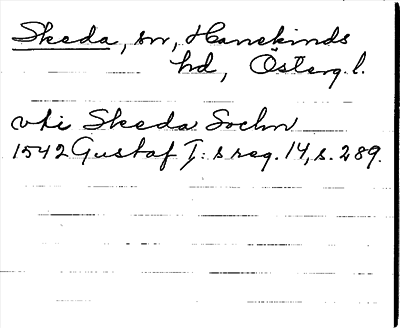 Skeda, sn, Hanekinds
hd, Österg.l.
vti Skeda Sochn
1542 Gustaf I:s reg. 14, s. 289.